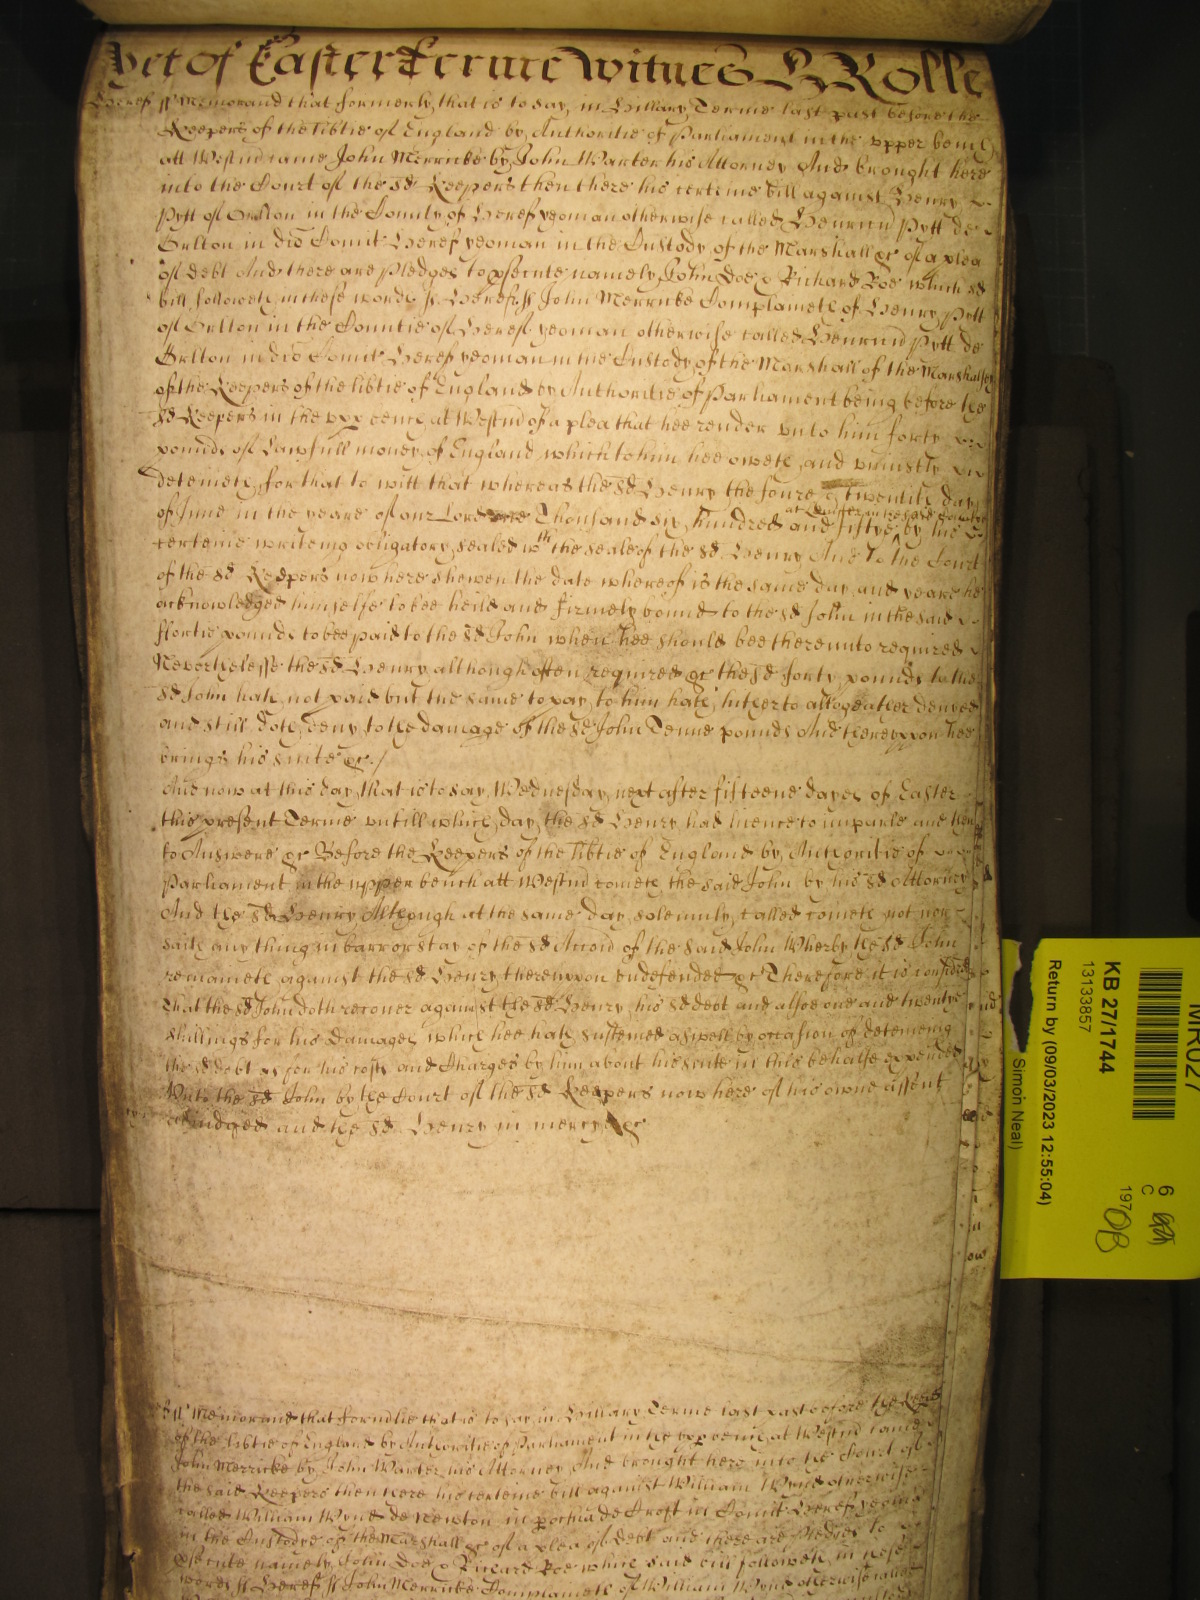 yet of Easter Terme Witnes H Rolle
Heref ss Memorand that formerly, that is to say, in Hillary Terme last past before the
Keepers of the libtie of England by Authoritie of Parliament in the vpper bench
att Westm came John Merricke by John Warter his Attorney And brought here
into the Court of the sd Keepers then there his certeine bill against Henry
Pytt of Orlton in the County of Heref yeoman otherwise called Henricu Pytt de
Orlton in dco Comit Heref yeoman in the Custody of the Marshall &c of a plea
of debt And there are Pledges to psecute namely John Doe & Richard Roe which sd
bill followeth in these words ss Heref ss John Merricke Complaineth of Henry Pytt
of Orlton in the Countie of Heref yeoman otherwise called Henricu Pytt de
Orlton in dco Comit Heref yeoman in the Custody of the Marshall of the Marshalsey
of the Keepers of the libtie of England by Authoritie of Parliament being before the
sd Keepers in the vpp bench at Westm of a plea that hee render vnto him forty
pounds of Lawfull money of England which to him hee oweth and vniustly
deteineth, for that to witt that whereas the sd Henry the foure & twentith day
of June in the yeare of our Lord one Thousand six hundred and fiftye by his
certeine writeing obligatory, sealed wth the seale of the sd Henry And to the Court
of the sd Keepers now here shewen the date whereof is the same day and yeare he
acknowledged himselfe to bee heild and firmely bound to the sd John in the said
ffortie pounds to bee paid to the sd John when hee should bee thereunto required
Neverthelesse the sd Henry although often required &c the sd forty pounds to the
sd John hath not paid but the same to pay to him hath hitherto altogeather denyed
and still doth deny to the damage of the sd John Tenne pounds And therevpon hee
brings his suite &c./
And now at this day, that is to say, Wednesday next after fifteene dayes of Easter
this present Terme vntill which day the sd Henry had licence to imparle and then
to Answere &c Before the Keepers of the libtie of England by Authoritie of
Parliament in the vpper bench att Westm cometh the said John by his sd Attorney
And the sd Henry Although at the same day solemnly called cometh not nor
saith any thing in barr or stay of the sd Accon of the said John Wherby the sd John
remaineth against the sd Henry therevpon vndefended &c Therefore it is considered
That the sd John doth recover against the sd Henry his sd debt and alsoe one and twenty
shillings for his Damages which hee hath susteined aswell by occasion of deteineing
the sd debt as for his costs and Charges by him about his suite in this behalfe expended
Vnto the sd John by the Court of the sd Keepers now here of his owne assent
adiudged and the sd Henry in mercy &c
ss Memorand that formlie that is to say in Hillary Terme last past before the Keeps
of the libtie of England by Authoritie of Parliament in the vpp bench at Westm came
John Merricke by John Warter his Attorney And brought here into the Court of
the said Keepers then there his certeine bill against William Wynd otherwise
called William Wynd de Newton in pochia de Croft in Comit Heref yeoman
in the Custodye of the Marshall &c of a plea of Debt and there are Pledges to
psecute namely John Doe & Richard Roe which said bill followeth in these
words ss Heref ss John Merricke Complaineth of William Wynd otherwise called
MR027
KB 27/1744
13133857
Return by (09/03/2023 12:55:04)
Simon Neal)
6
C
197